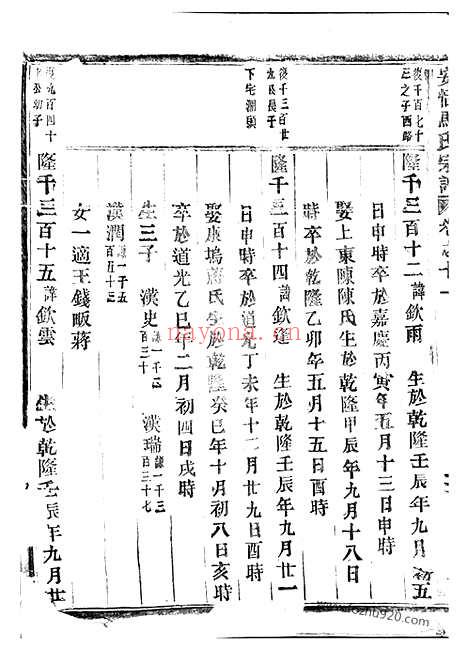 安悟馬氏宗譜 卷之十一
後千百七十
三之子西畴
隆千三百十二 諱欽雨 生於乾隆壬辰年九月初五
日申時卒於嘉慶丙寅年五月十三日申時
娶上東陳陳氏生於乾隆甲辰年九月十八日
時卒於乾隆乙卯年五月十五日酉時
後千三百廿
九公長子
下宅湖頭
隆千三百十四 諱欽達 生於乾隆壬辰年九月廿一
日申時卒於道光丁未年十二月廿九日酉時
娶康塢蔣氏生於乾隆癸巳年十月初八日亥時
卒於道光乙巳年二月初四日戌時
生三子 漢史謙一千三百三十 漢瑞謙一千三百三十七
漢潤謙一千五百四十五
女一適王錢畈蔣
後九百四十
公幼子
隆千三百十五 諱欽雲 生於乾隆壬辰年九月廿
nayona.cn
www.fozhu920.com